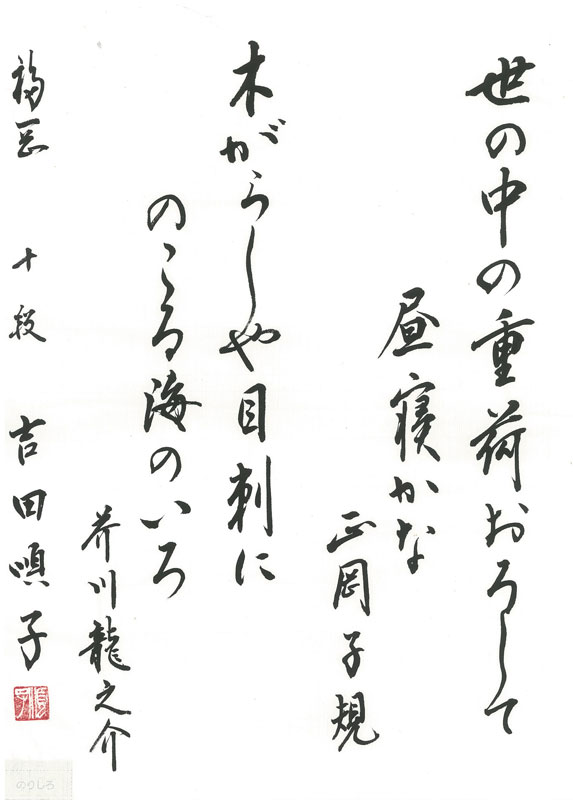 世の中の重荷おろして
昼寝かな
正岡子規
木がらしや目刺に
のこる海のいろ
芥川龍之介
福岡 十段 吉田唄子
のりしろ